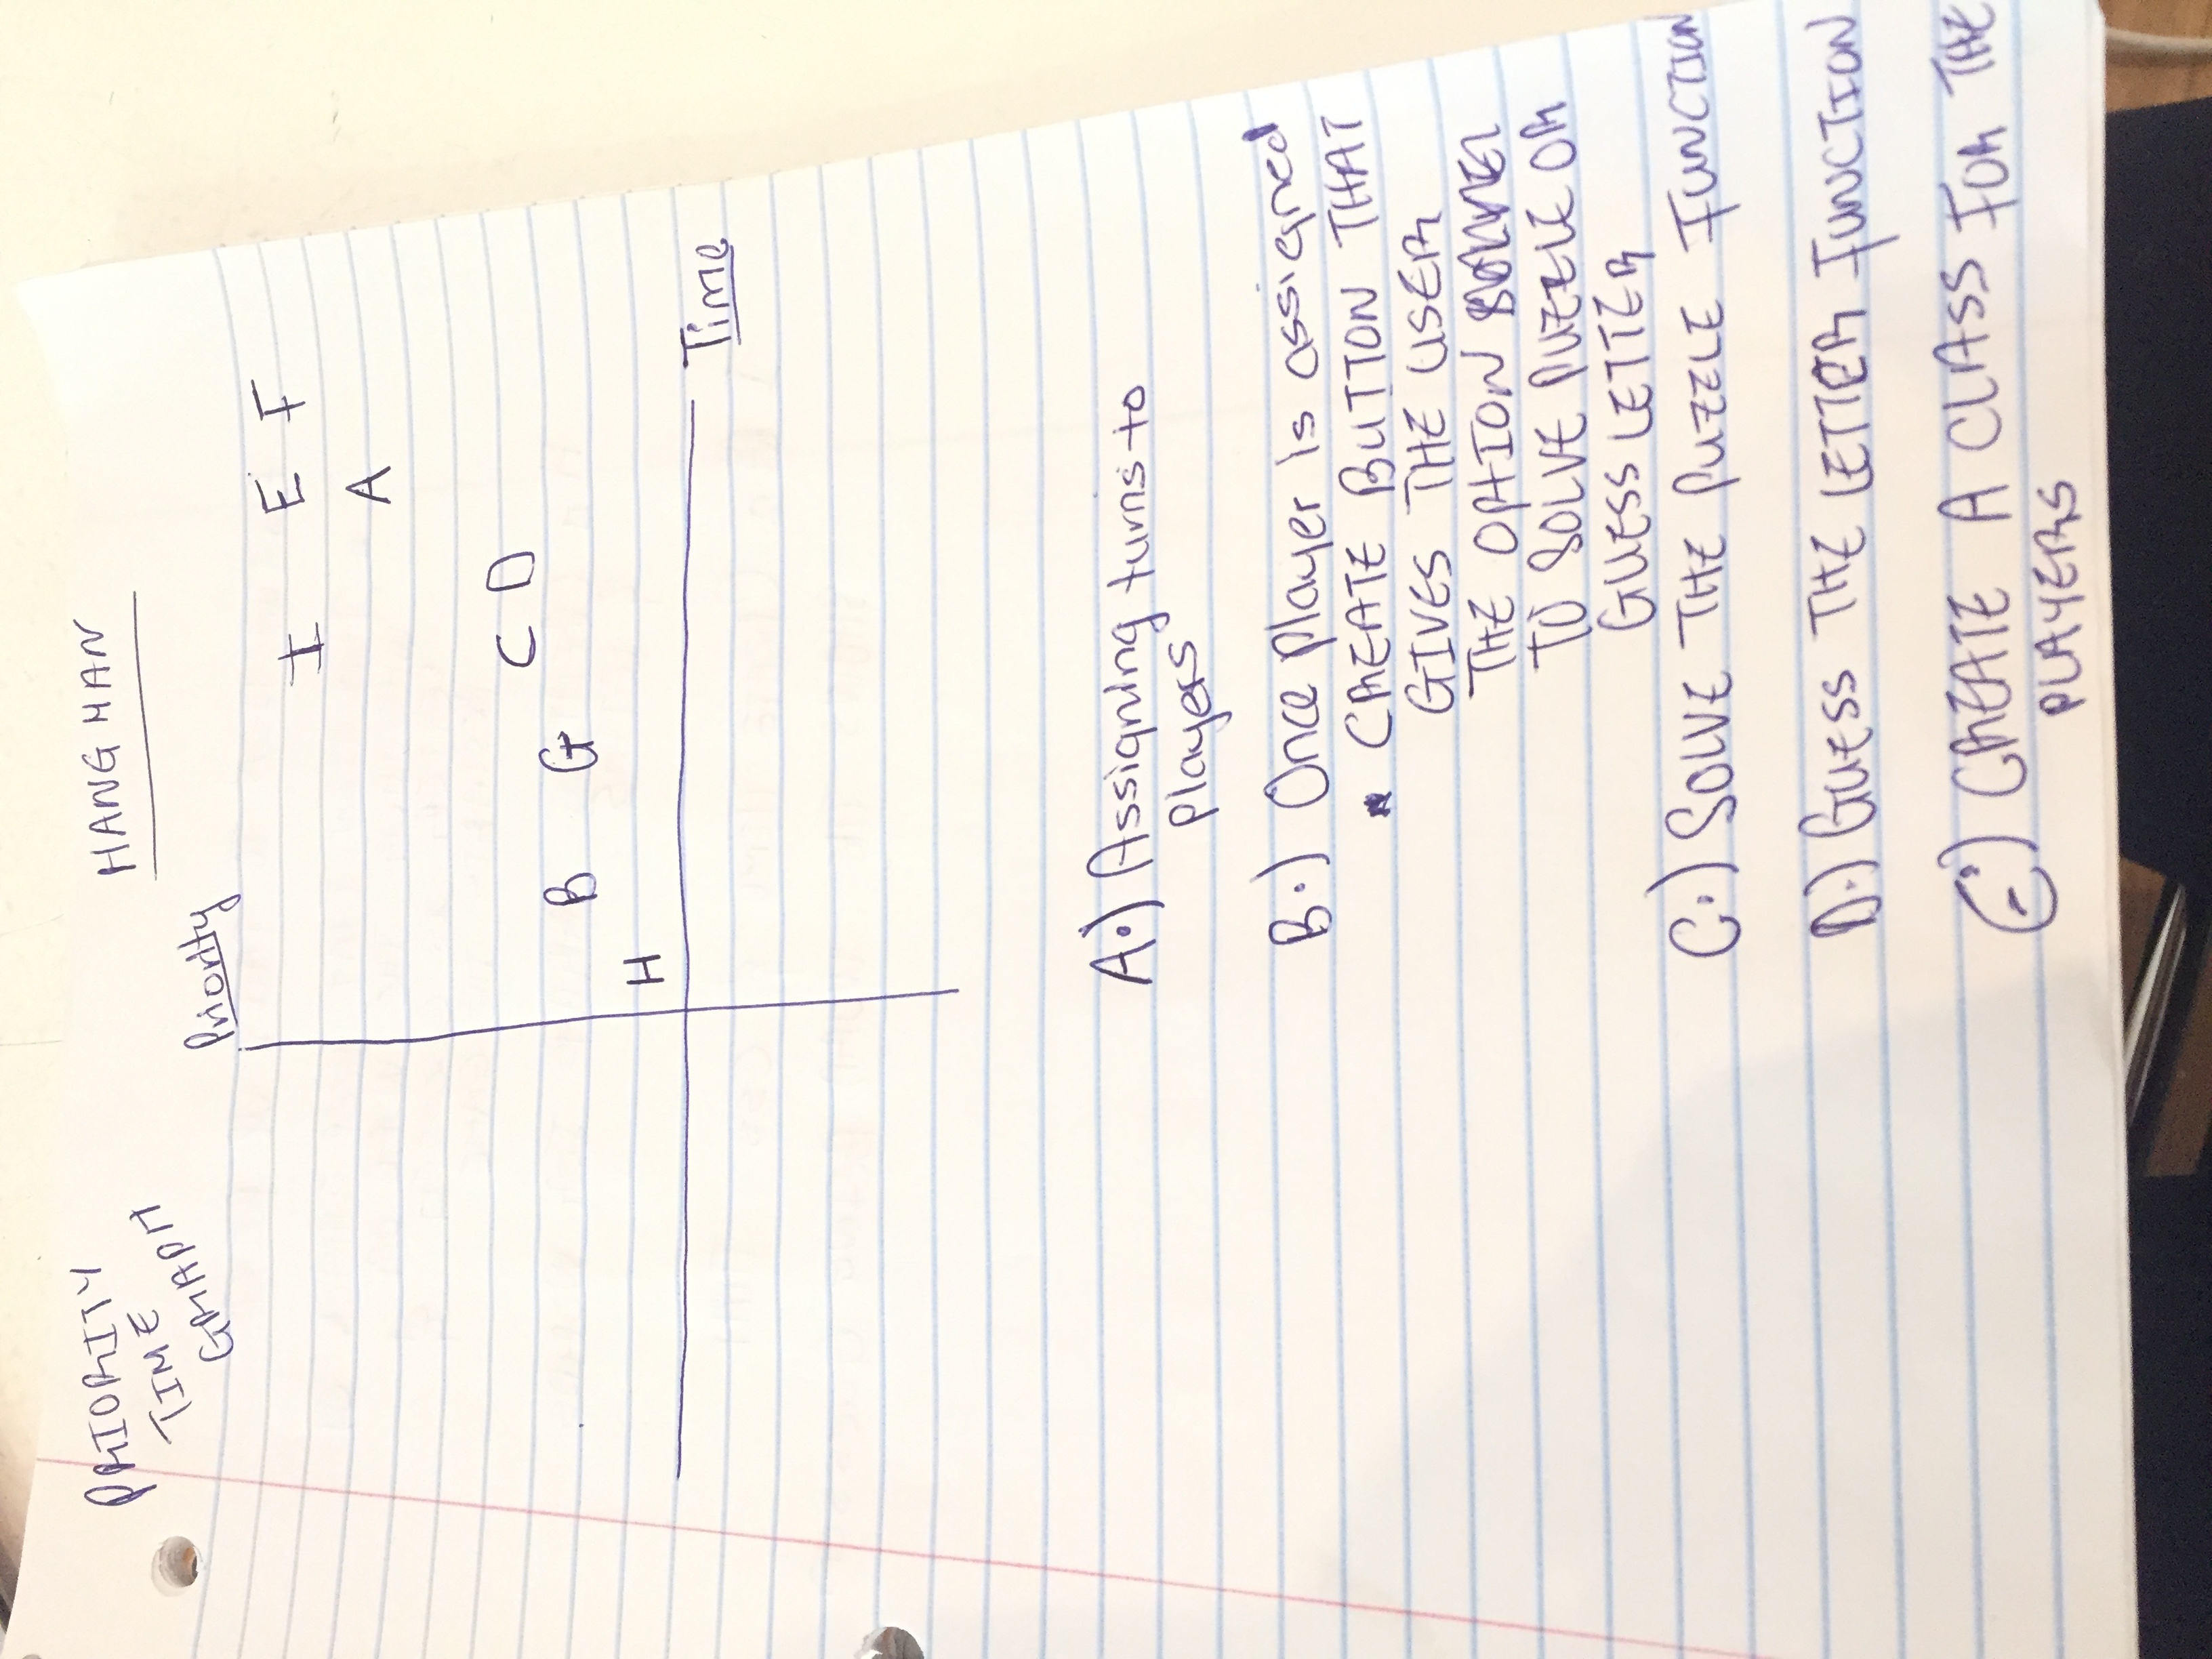 PRIORITY
TIME
GRAPH
HANGMAN
Priority
I E F
A
C D
B G
H
Time
A.) Assigning turns to
Players
B.) Once player is assigned
* CREATE BUTTON THAT
GIVES THE USER
THE OPTION
TO SOLVE PUZZLE OR
GUESS LETTER
C.) SOLVE THE PUZZLE FUNCTION
D.) GUESS THE LETTER FUNCTION
E.) CREATE A CLASS FOR THE
PLAYERS